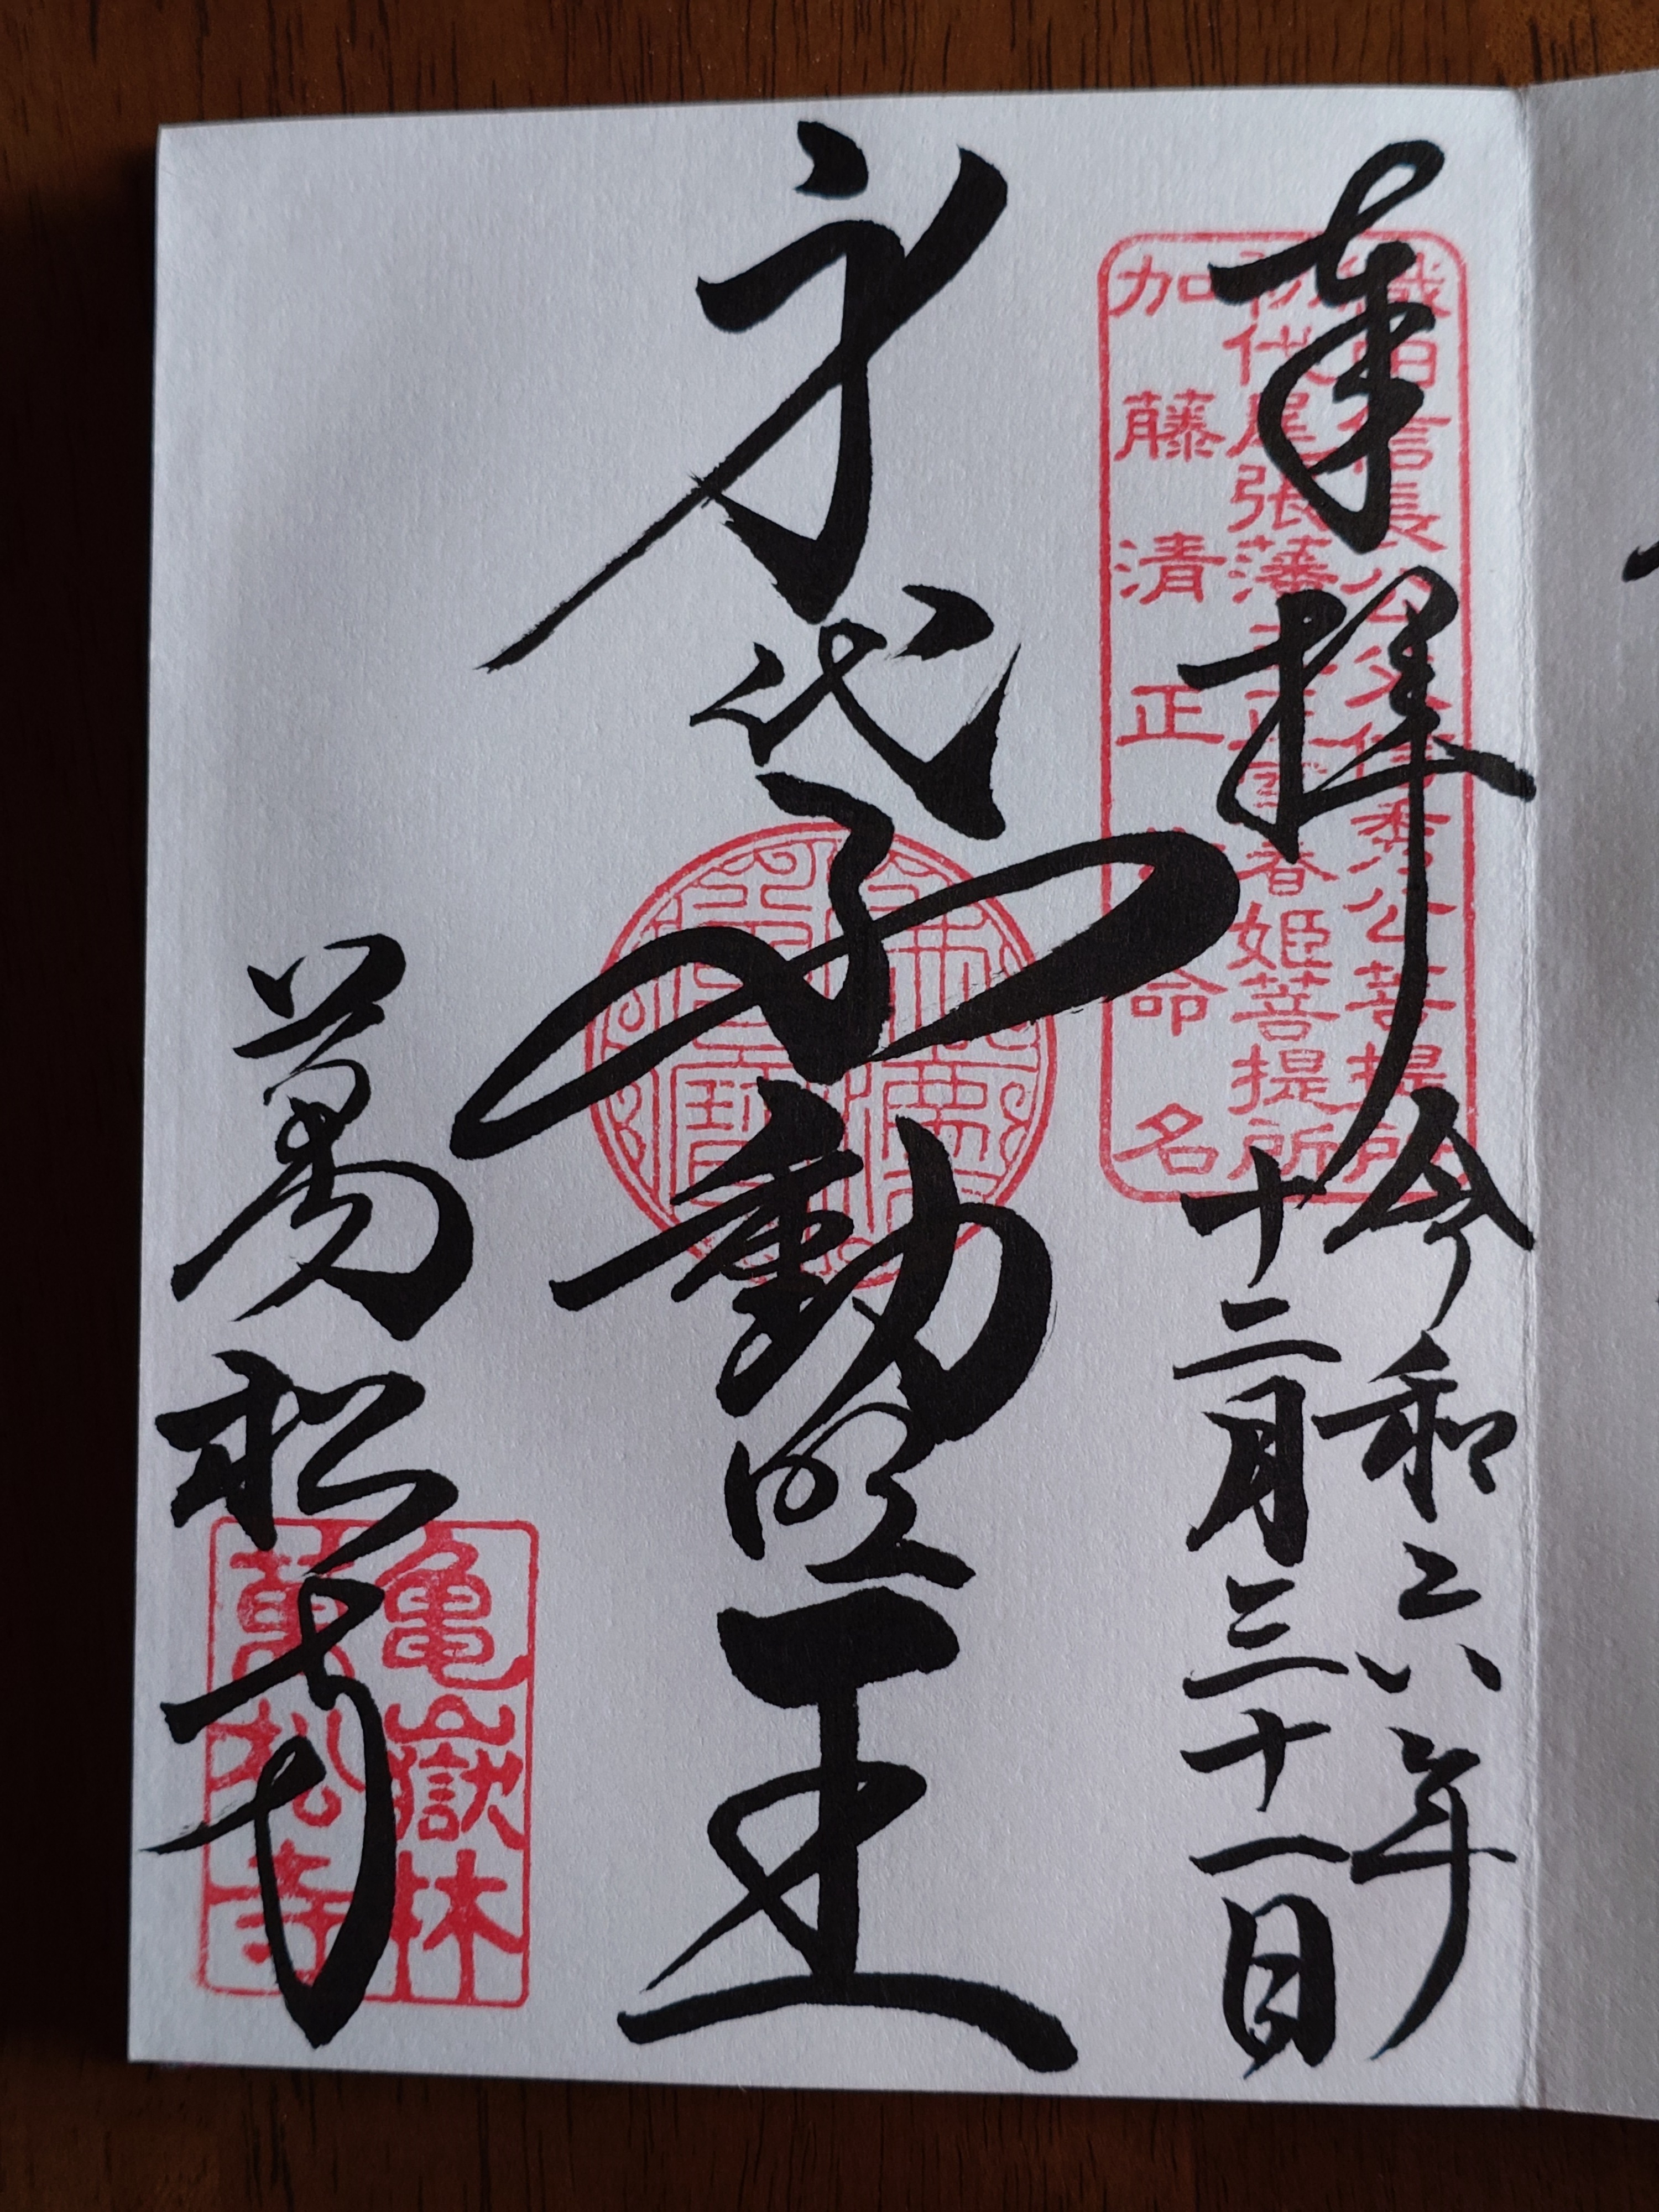 奉拝
令和六年
十二月三十一日
織田信長公父信秀公菩提所
初代尾張藩主義直正室春姫菩提所
加藤清正公命名
身代不動明王
萬松寺
亀嶽林
萬松寺